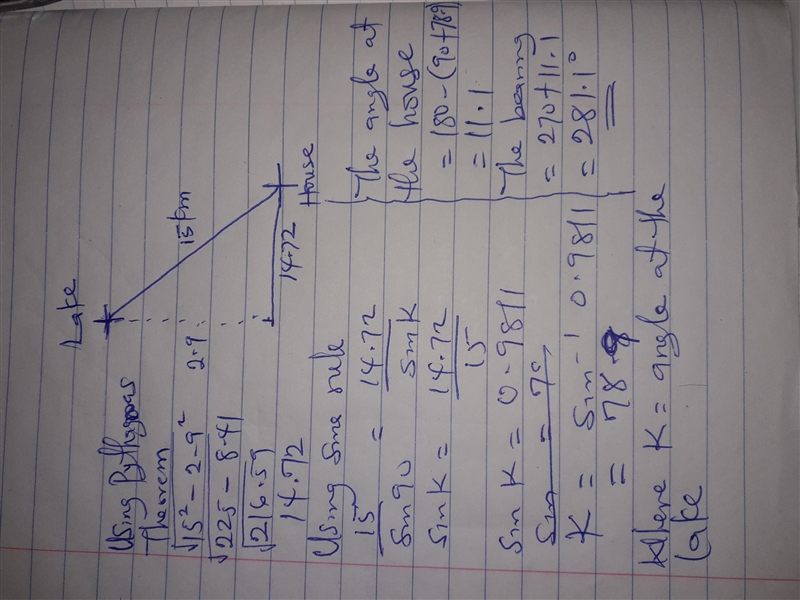 Lake
15 km
2.9
14.72
House
Using Pythagoras
Theorem
√15² - 2.9²
√225 - 8.41
√216.59
14.72
Using Sine rule
15/Sin90 = 14.72/SinK
SinK = 14.72/15
Sin K = 0.9811
Sin = 78
K = Sin⁻¹ 0.9811
= 78.9
Where K = angle at the
Lake
The angle at
the house
= 180 - (90+78.9)
= 11.1
The bearing
= 270 + 11.1
= 281.1°